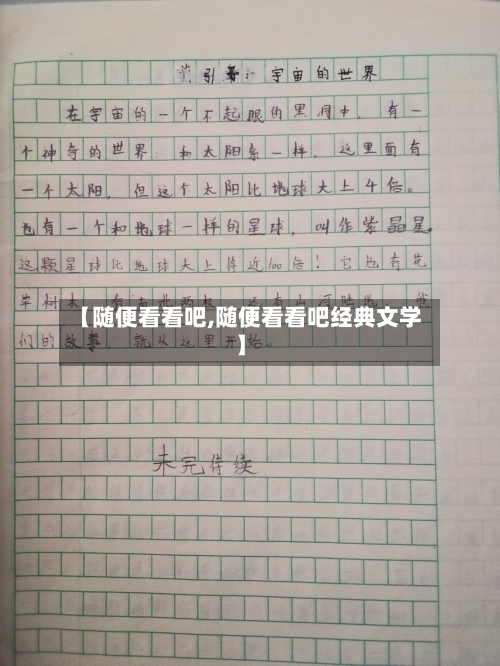 引 : 宇宙的世界
在宇宙的一个不起眼的黑洞中，有一
个神奇的世界 和太阳系一样，这里面有
一个太阳，但这个太阳比地球大上4倍。
也有一个和地球一样的星球，叫作紫晶星。
这颗星球比地球大上将近100倍！它也有花
草树木 有南北两极 还有山河陆地 我
【随便看看吧,随便看看吧经典文学
】
们的故事 就从这里开始。
未完待续